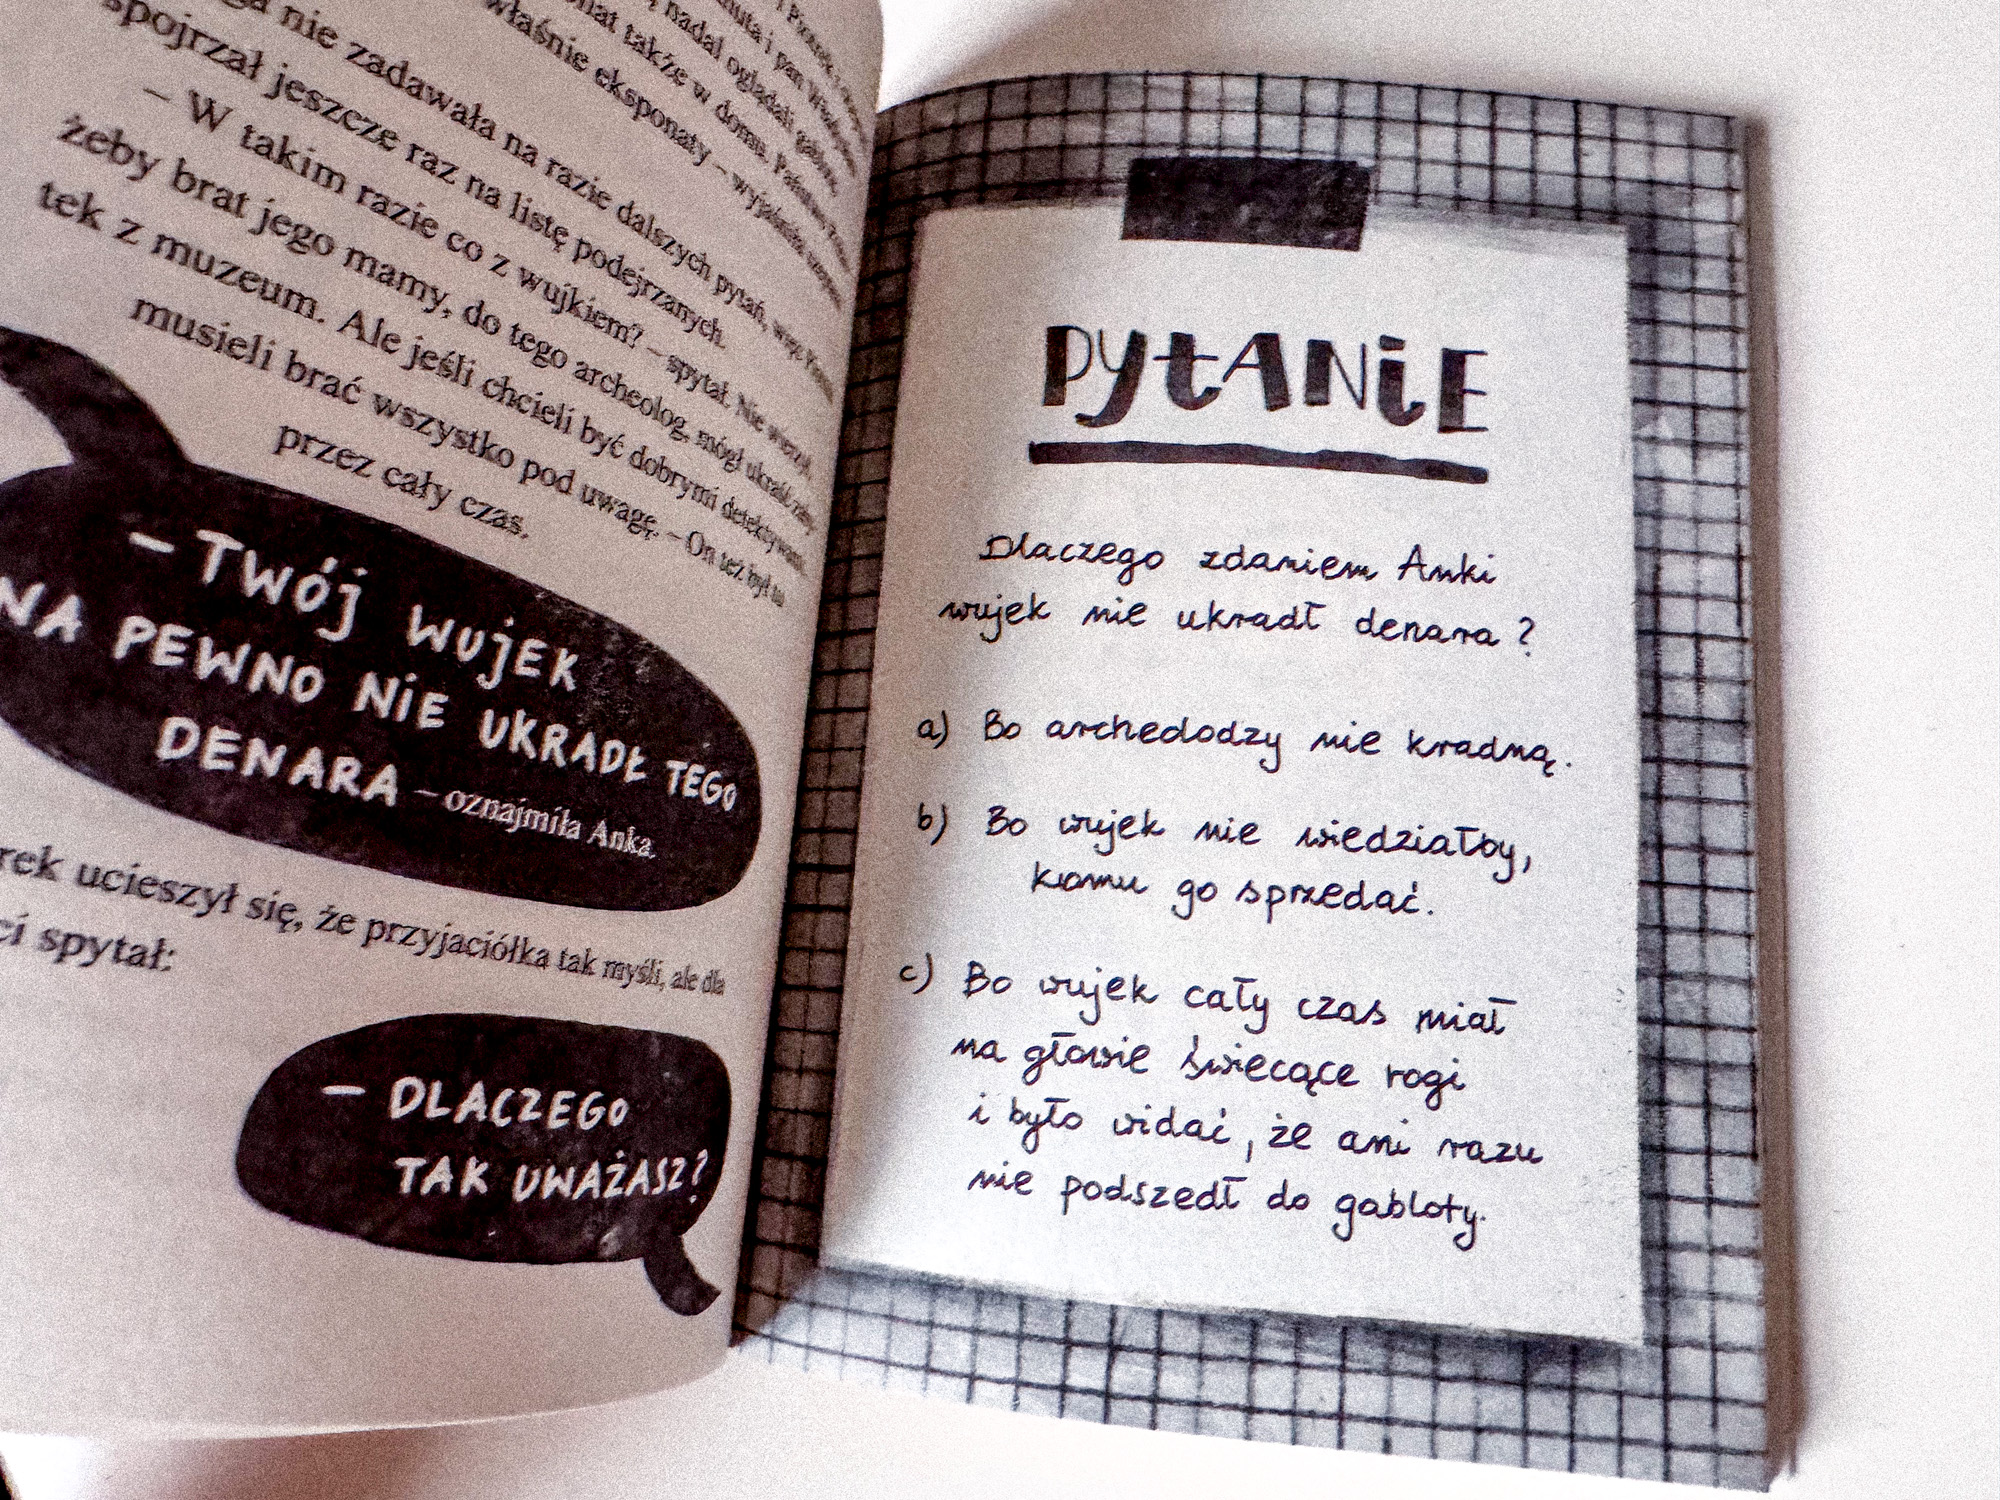 nie zadawała na razie dalszych pytań, więc
spojrzał jeszcze raz na listę podejrzanych.
– W takim razie co z wujkiem? – spytał. Nie wierzył,
żeby brat jego mamy, do tego archeolog, mógł ukraść
tek z muzeum. Ale jeśli chcieli być dobrymi detektywami,
musieli brać wszystko pod uwagę. – On też był tu
przez cały czas.
– TWÓJ WUJEK
NA PEWNO NIE UKRADŁ TEGO
DENARA – oznajmiła Anka.
rek ucieszył się, że przyjaciółka tak myśli, ale dla
ci spytał:
– DLACZEGO
TAK UWAŻASZ?
nadal oglądali gabloty,
nat także w domu.
właśnie eksponaty – wyjaśniła
PYTANIE
Dlaczego zdaniem Anki
wujek nie ukradł denara?
a) Bo archedodzy nie kradną.
b) Bo wujek nie wiedziałby,
komu go sprzedać.
c) Bo wujek cały czas miał
na głowie świecące rogi
i było widać, że ani razu
nie podszedł do gabloty.